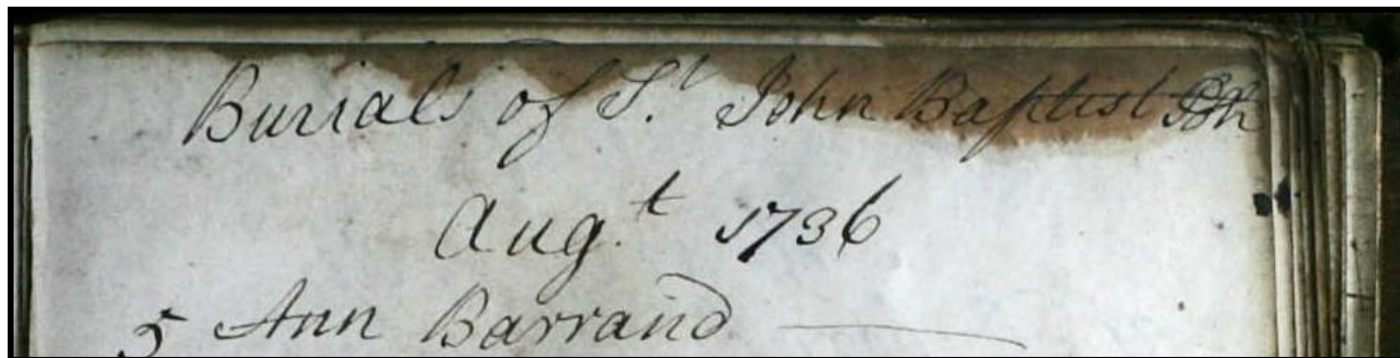 Burials of St. John Baptist Psh
Augt. 1736
5 Ann Barraud